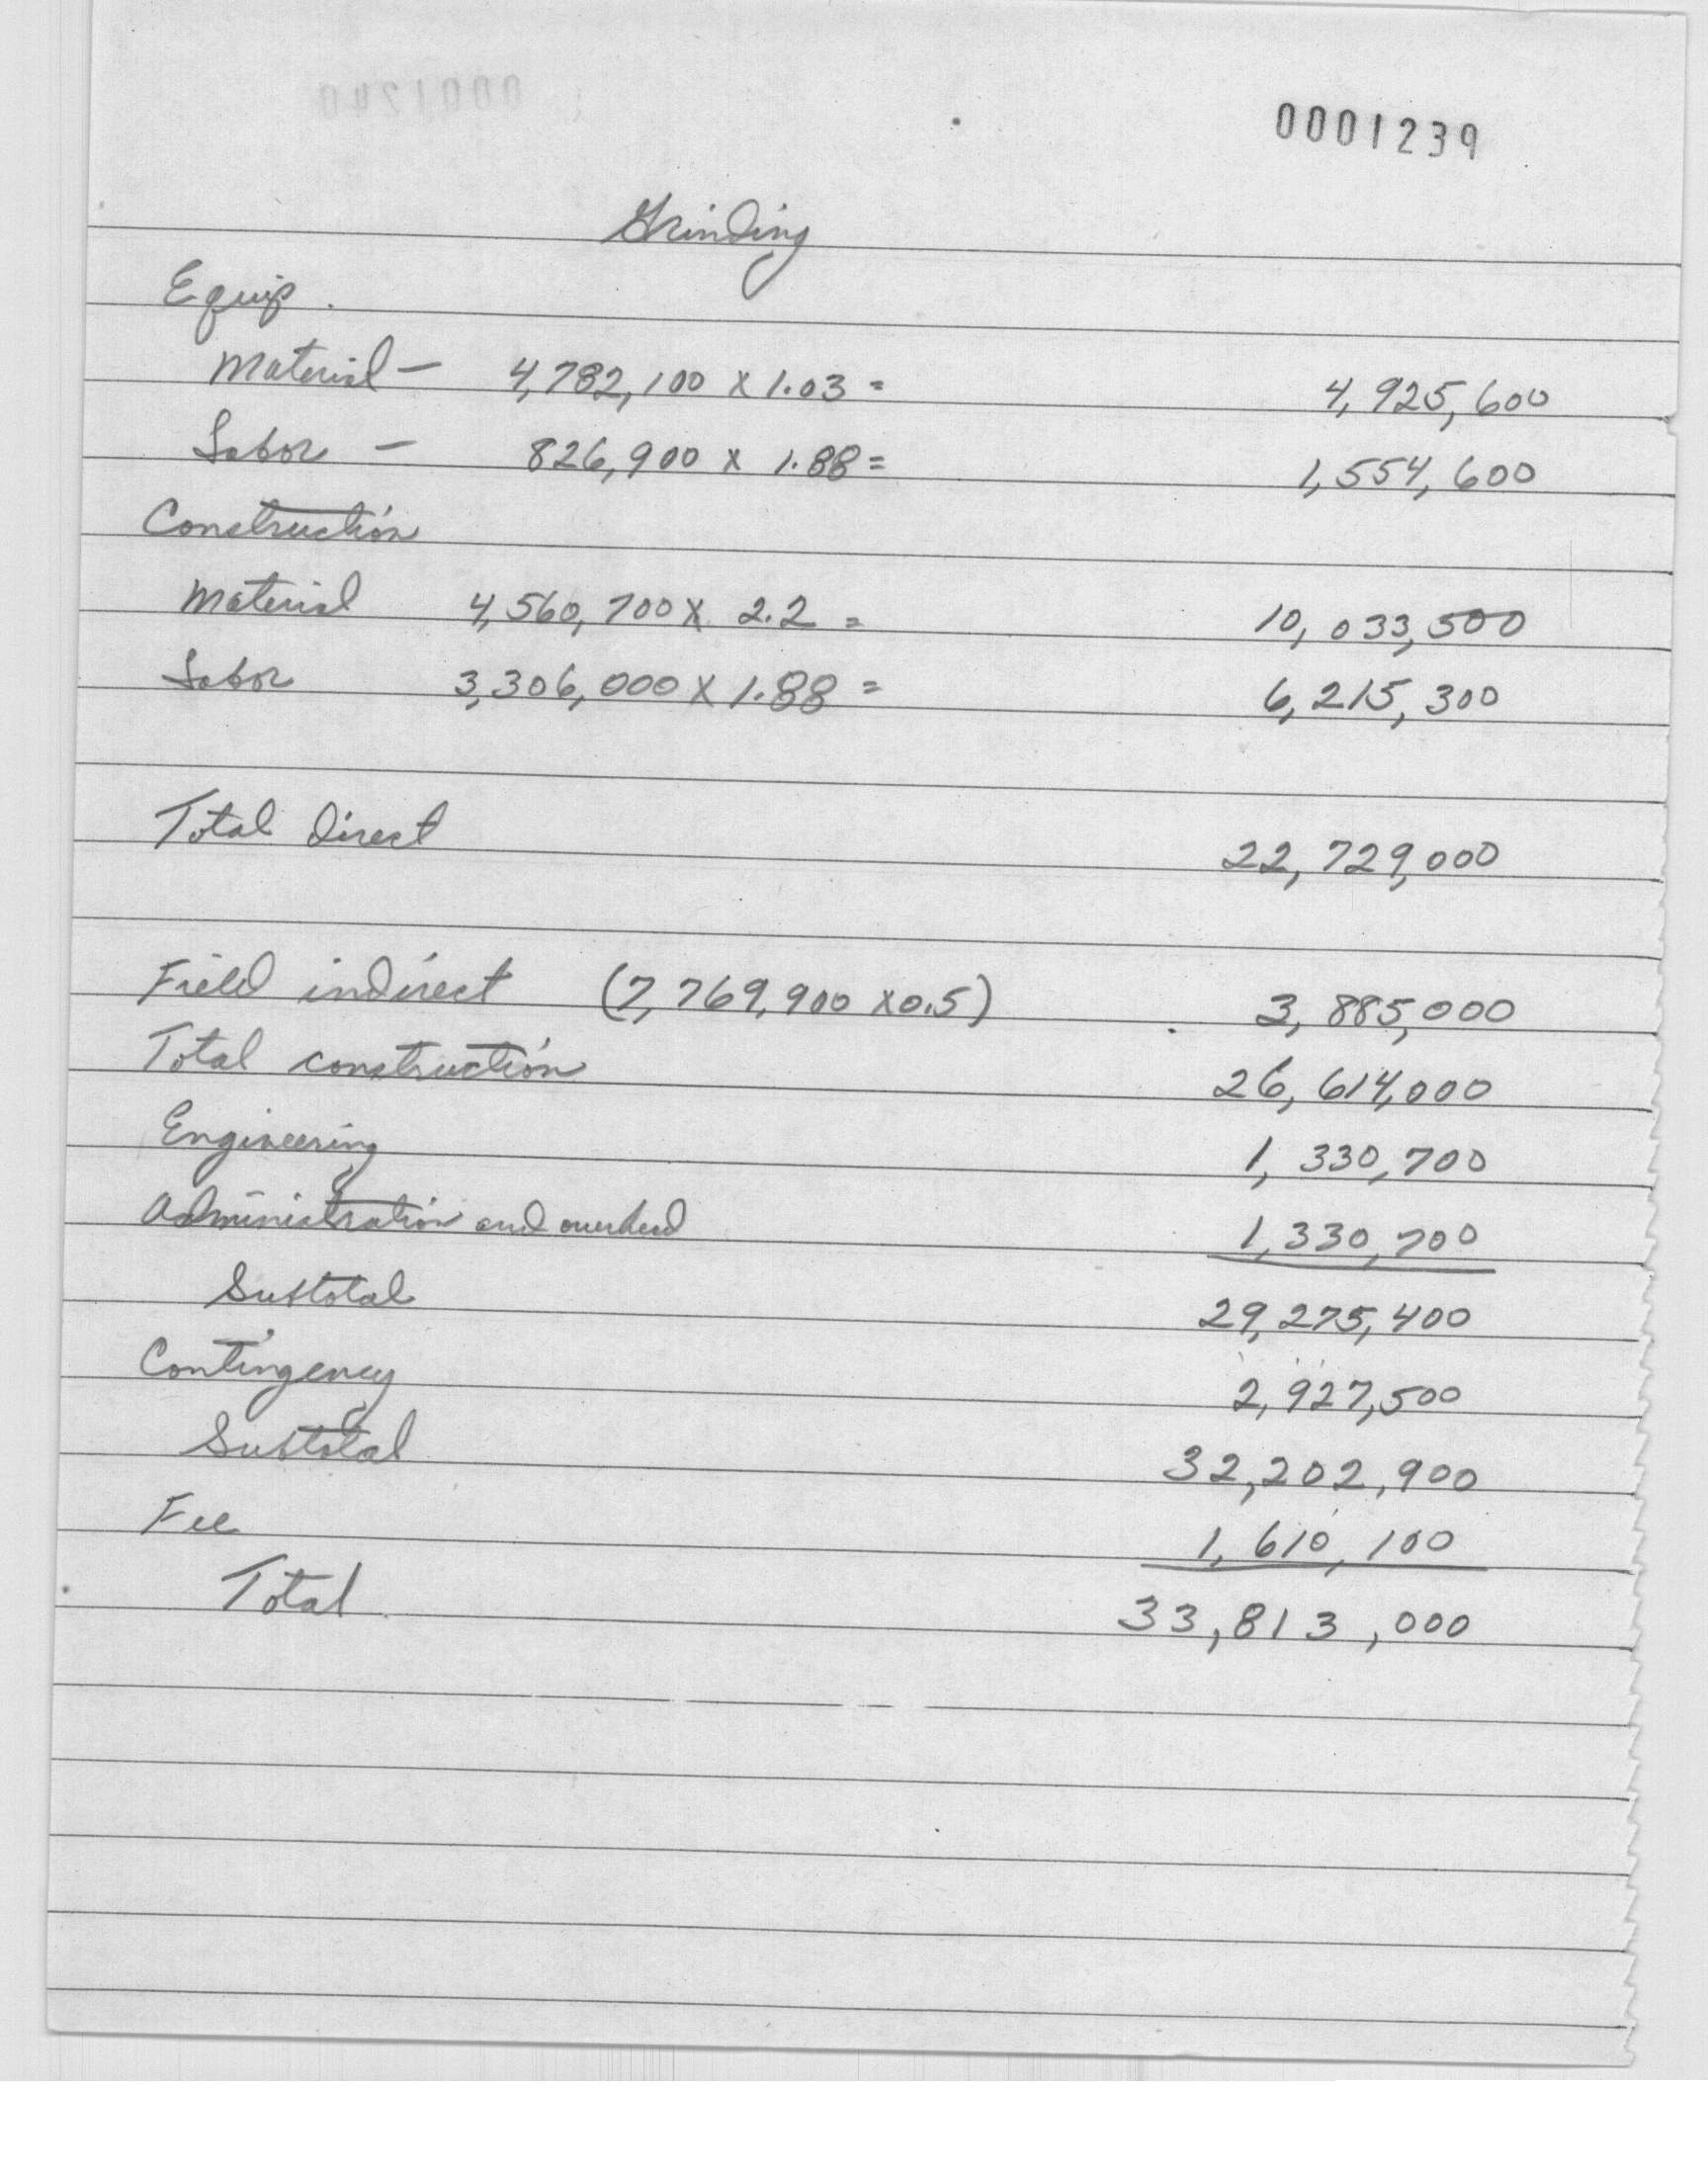 0001240
0001239
Grinding
Equip.
Material - 4,782,100 x 1.03 = 4,925,600
Labor - 826,900 x 1.88 = 1,554,600
Construction
Material 4,560,700 x 2.2 = 10,033,500
Labor 3,306,000 x 1.88 = 6,215,300
Total direct 22,729,000
Field indirect (7,769,900 x 0.5) 3,885,000
Total construction 26,614,000
Engineering 1,330,700
Administration and overhead 1,330,700
Subtotal 29,275,400
Contingency 2,927,500
Subtotal 32,202,900
Fee 1,610,100
Total 33,813,000